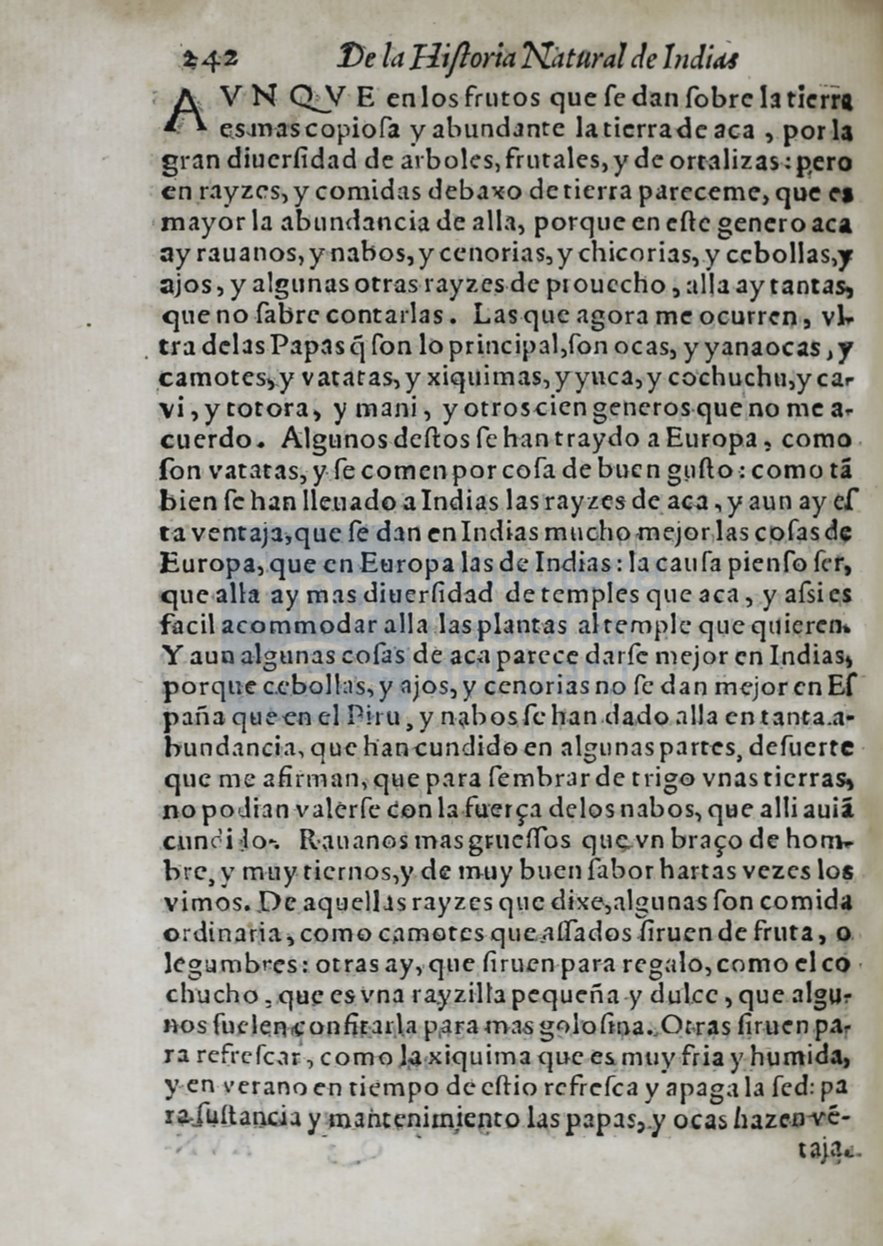 242 De la Hiſtoria Natural de Indias
AVNQVE en los frutos que ſe dan ſobre la tierra
es mas copioſa y abundante la tierra de aca, por la
gran diuerſidad de arboles, frutales, y de ortalizas: pero
en rayzes, y comidas debaxo de tierra pareceme, que es
mayor la abundancia de alla, porque en eſte genero aca
ay rauanos, y nabos, y cenorias, y chicorias, y cebollas, y
ajos, y algunas otras rayzes de prouecho, alla ay tantas,
que no ſabre contarlas. Las que agora me ocurren, vl-
tra delas Papas q̃ ſon lo principal, ſon ocas, y yanaocas, y
camotes, y vatatas, y xiquimas, y yuca, y cochuchu, y ca-
vi, y totora, y mani, y otros cien generos que no me a-
cuerdo. Algunos deſtos ſe han traydo a Europa, como
ſon vatatas, y ſe comen por coſa de buen guſto: como tã
bien ſe han lleuado a Indias las rayzes de aca, y aun ay eſ
ta ventaja, que ſe dan en Indias mucho mejor las coſas de
Europa, que en Europa las de Indias: la cauſa pienſo ſer,
que alla ay mas diuerſidad de temples que aca, y aſsi es
facil acommodar alla las plantas al temple que quieren.
Y aun algunas coſas de aca parece darſe mejor en Indias,
porque cebollas, y ajos, y cenorias no ſe dan mejor en Eſ
paña que en el Piru, y nabos ſe han dado alla en tanta a-
bundancia, que han cundido en algunas partes, deſuerte
que me afirman, que para ſembrar de trigo vnas tierras,
no podian valerſe con la fuerça delos nabos, que alli auiã
cundido. Rauanos mas grueſſos que vn braço de hom-
bre, y muy tiernos, y de muy buen ſabor hartas vezes los
vimos. De aquellas rayzes que dixe, algunas ſon comida
ordinaria, como camotes que aſſados ſiruen de fruta, o
legumbres: otras ay, que ſiruen para regalo, como el co
chucho, que es vna rayzilla pequeña y dulce, que algu-
nos ſuelen confitarla para mas goloſina. Otras ſiruen pa-
ra refreſcar, como la xiquima que es muy fria y humida,
y en verano en tiempo de eſtio refreſca y apaga la ſed: pa
ra ſuſtancia y mantenimiento las papas, y ocas hazen vẽ-
taja.